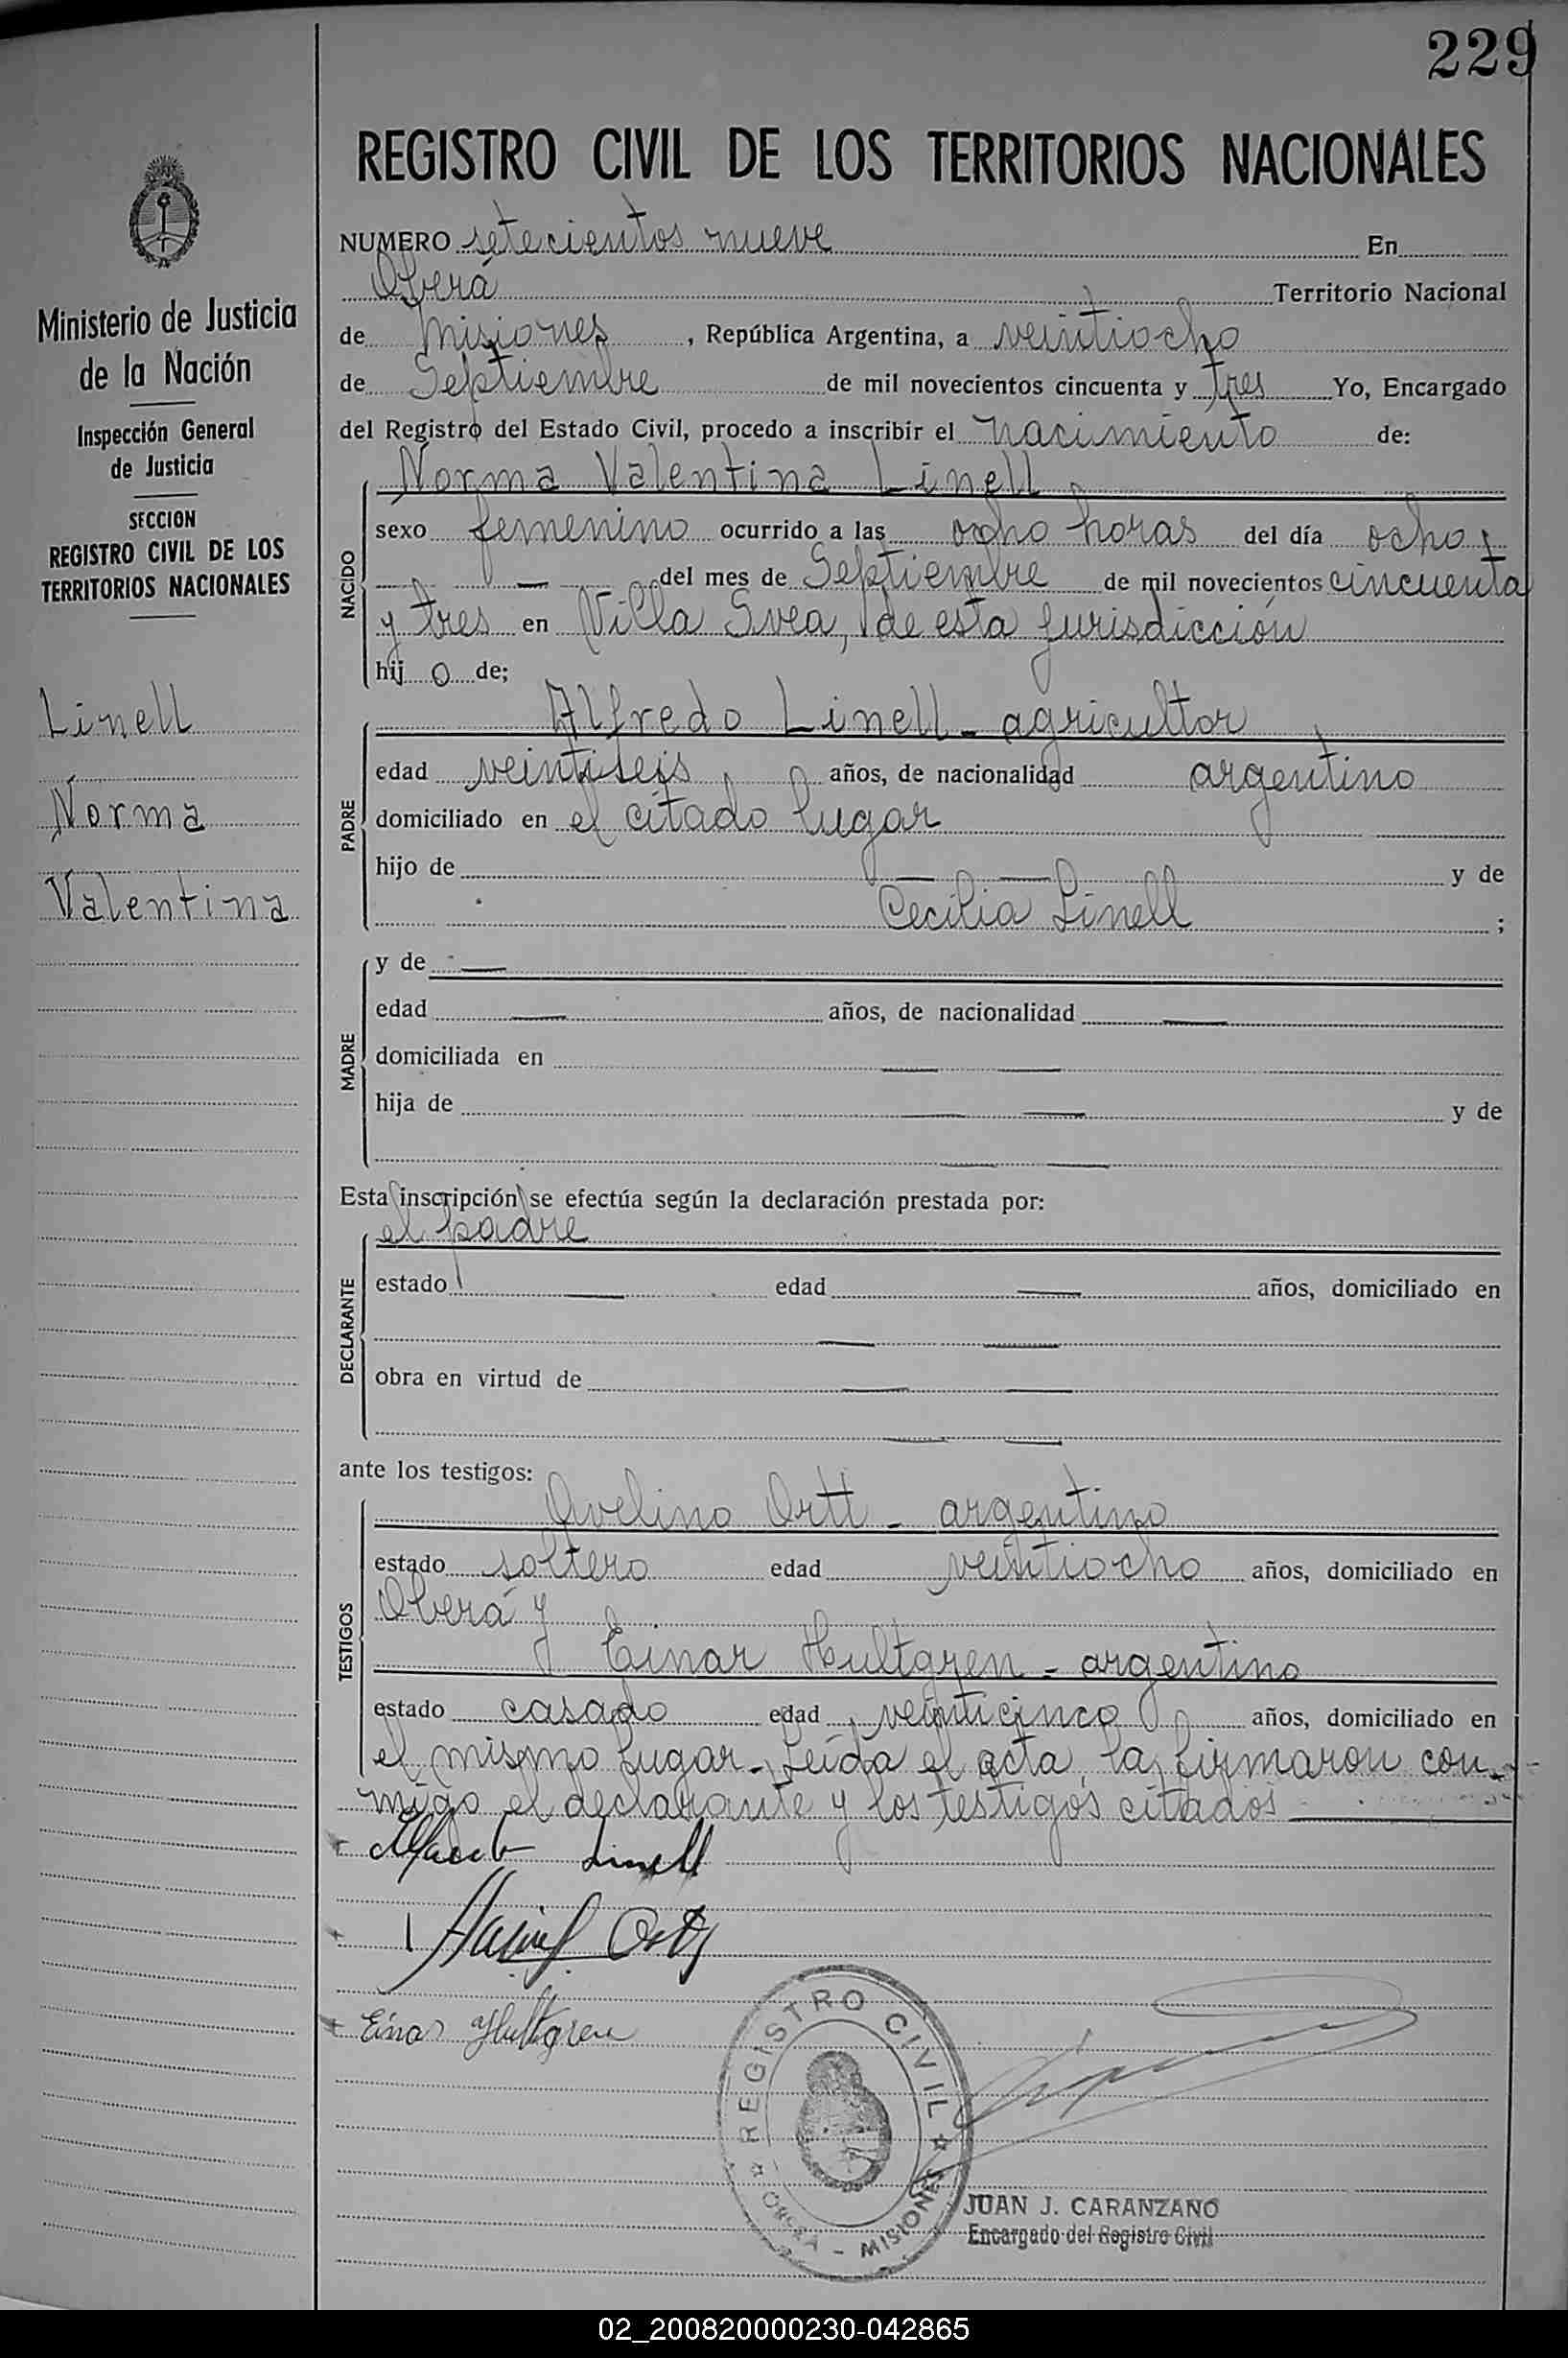 229
REGISTRO CIVIL DE LOS TERRITORIOS NACIONALES
NUMERO setecientos nueve En
Oberá Territorio Nacional
de Misiones, República Argentina, a veintiocho
de Septiembre de mil novecientos cincuenta y tres Yo, Encargado
del Registro del Estado Civil, procedo a inscribir el nacimiento de:
Ministerio de Justicia
de la Nación
Inspección General
de Justicia
SECCION
REGISTRO CIVIL DE LOS
TERRITORIOS NACIONALES
Linell
Norma
Valentina
NACIDO
Norma Valentina Linell
sexo femenino ocurrido a las ocho horas del día ocho
— del mes de Septiembre de mil novecientos cincuenta
y tres en Villa Svea, de esta jurisdicción
hij o de;
PADRE
Alfredo Linell - agricultor
edad veintiseis años, de nacionalidad argentino
domiciliado en el citado lugar
hijo de — — y de
Cecilia Linell ;
MADRE
y de —
edad — años, de nacionalidad —
domiciliada en — —
hija de — — y de
— —
Esta inscripción se efectúa según la declaración prestada por:
DECLARANTE
el padre
estado — edad — años, domiciliado en
— —
obra en virtud de — —
— —
ante los testigos:
TESTIGOS
Avelino Ortt - argentino
estado soltero edad veintiocho años, domiciliado en
Oberá y
Einar Hultgren - argentino
estado casado edad veinticinco años, domiciliado en
el mismo lugar - Leída el acta, la firmaron con-
migo el declarante y los testigos citados
Linell
Einar Hultgren
REGISTRO CIVIL
OBERA - MISIONES
JUAN J. CARANZANO
Encargado del Registro Civil
02_200820000230-042865